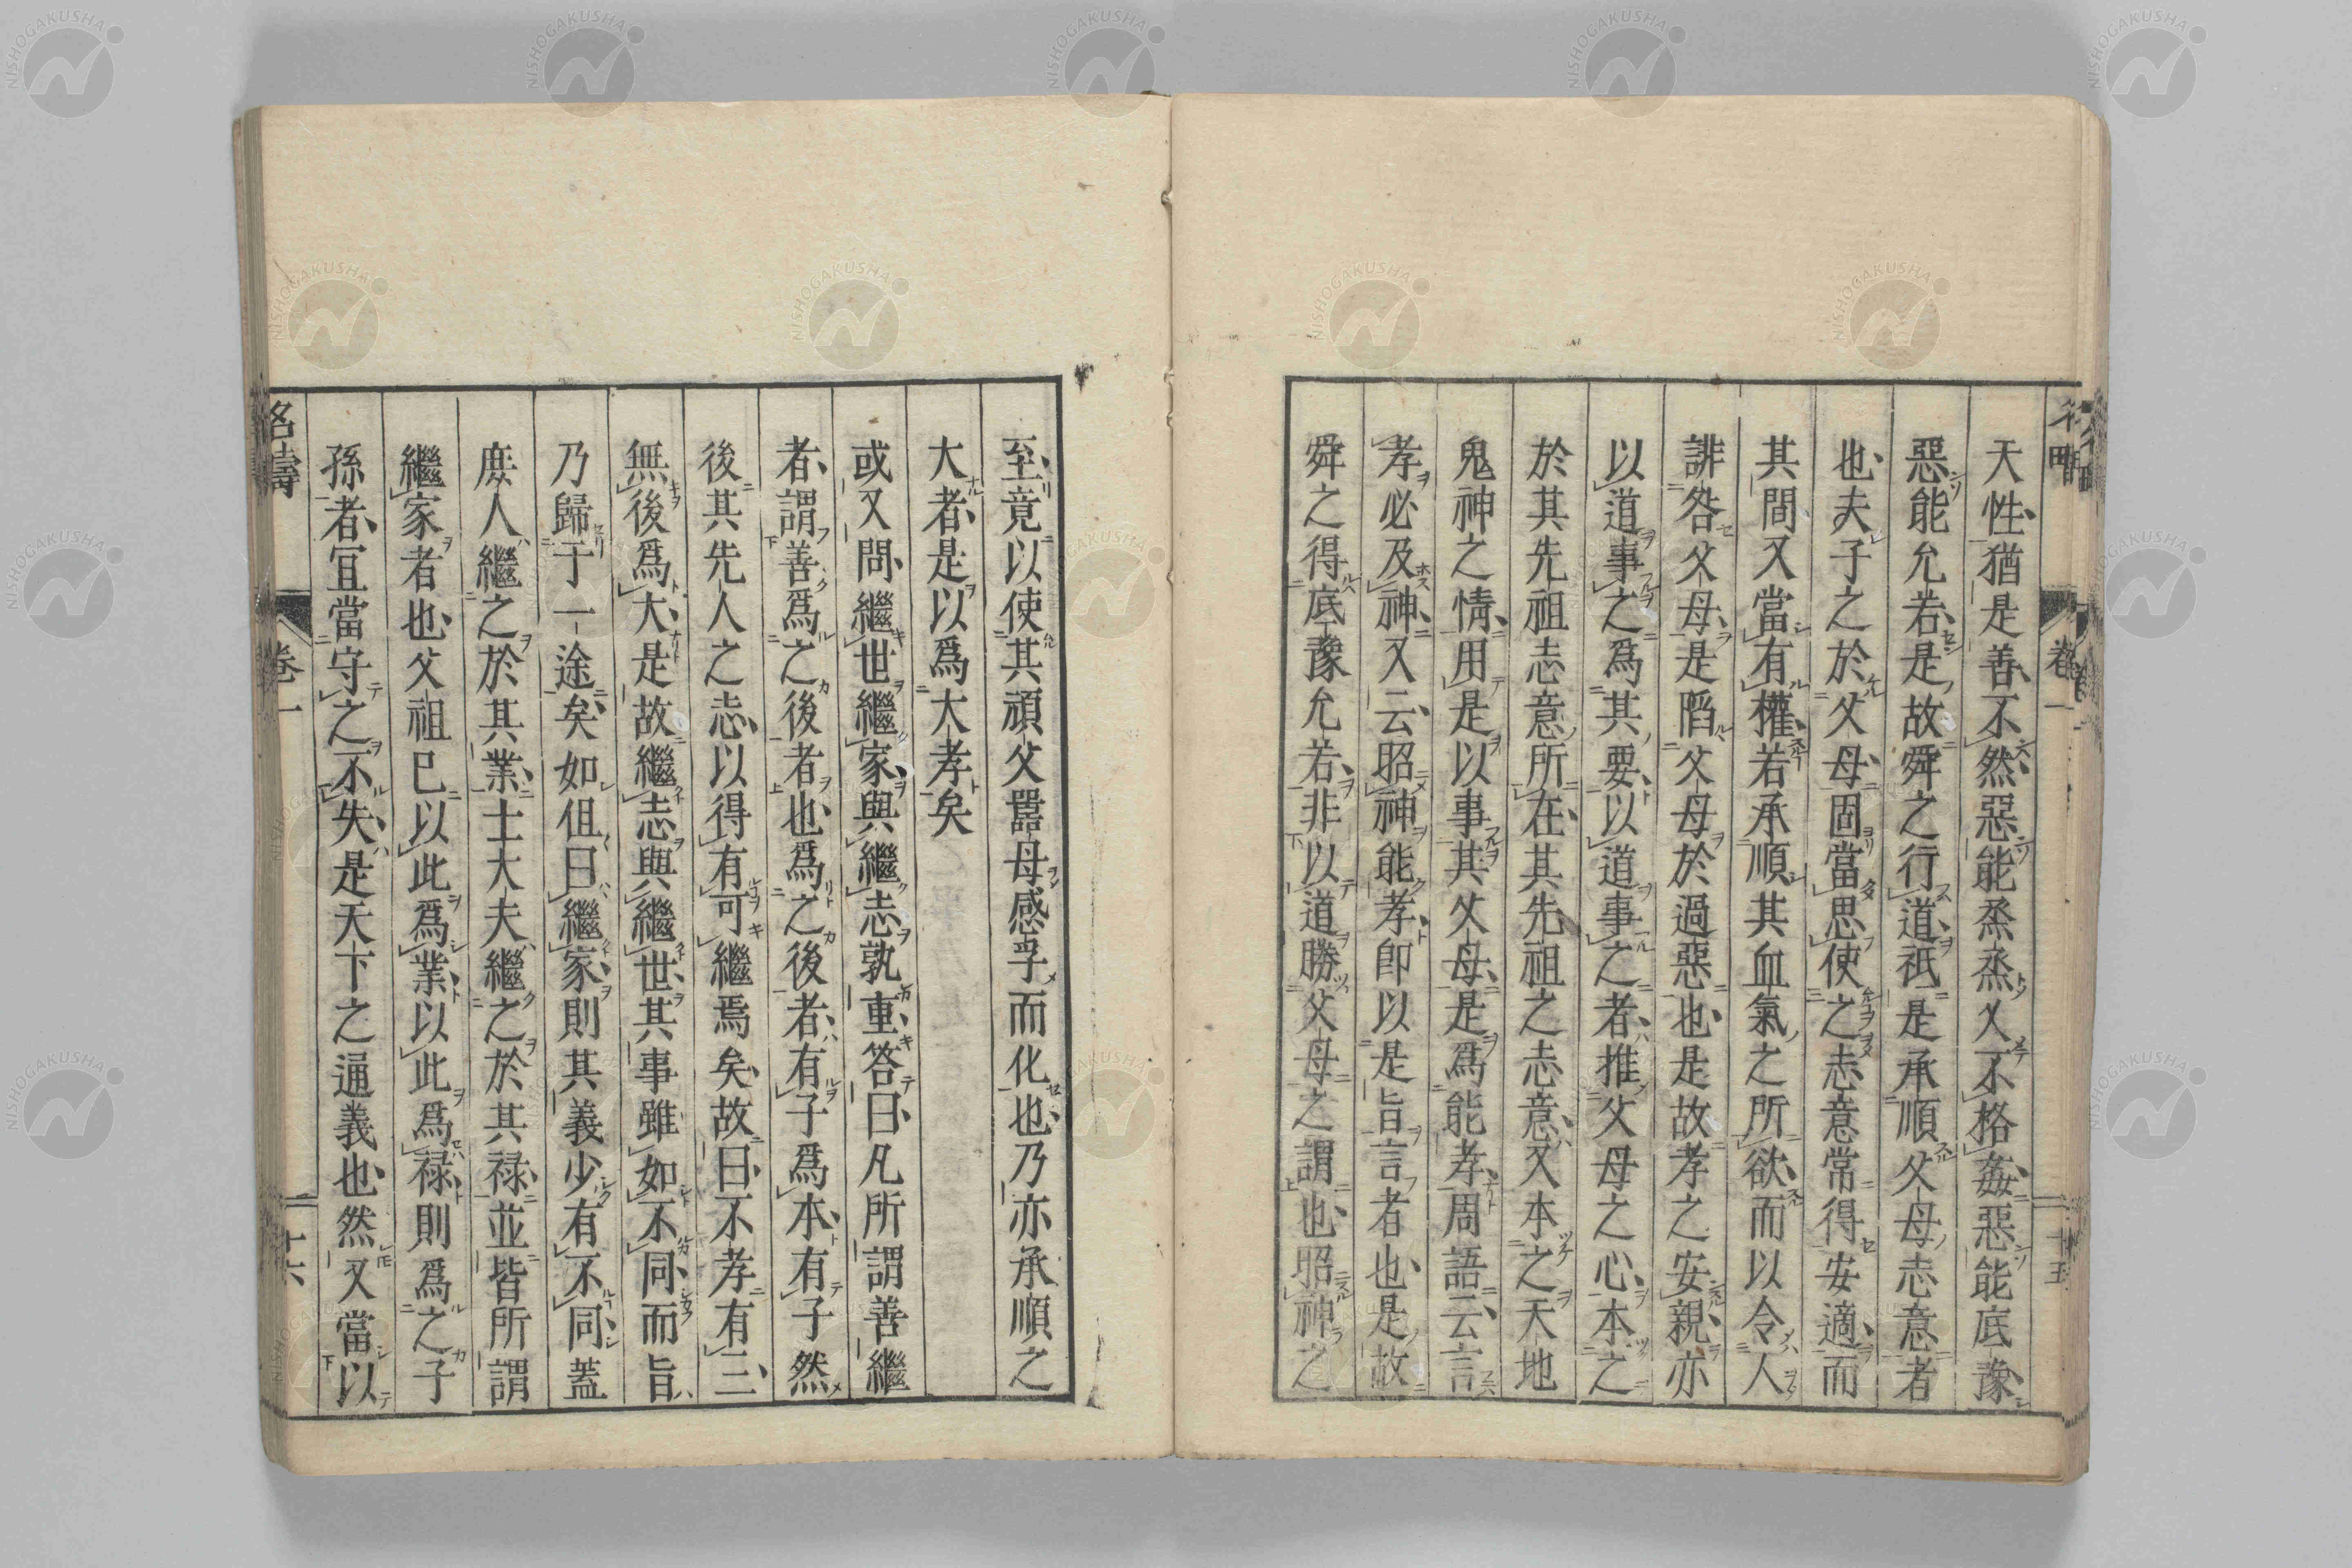 天性猶是善不然惡能烝烝乂不格姦惡能底豫
惡能允若是故舜之行道祇是承順父母志意者
也夫子之於父母固當思使之志意常得安適而
其間又當有權若承順其血氣之所欲而以令人
誹咎父母是陷父母於過惡也是故孝之安親亦
以道事之爲其要以道事之者推父母之心本之
於其先祖志意所在其先祖之志意又本之天地
鬼神之情用是以事其父母是爲能孝周語云言
孝必及神又云昭神能孝即以是旨言者也是故
舜之得底豫允若非以道勝父母之謂也昭神之
卷一
十五
至竟以使其頑父嚚母感孚而化也乃亦承順之
大者是以爲大孝矣
或又問繼世繼家與繼志孰重答曰凡所謂善繼
者謂善爲之後者也爲之後者有子爲本有子然
後其先人之志以得有可繼焉矣故曰不孝有三
無後爲大是故繼志與繼世其事雖如不同而旨
乃歸于一途矣如但曰繼家則其義少有不同蓋
庶人繼之於其業士大夫繼之於其祿並皆所謂
繼家者也父祖已以此爲業以此爲祿則爲之子
孫者宜當守之不失是天下之通義也然又當以
卷一
十六
NISHOGAKUSHA